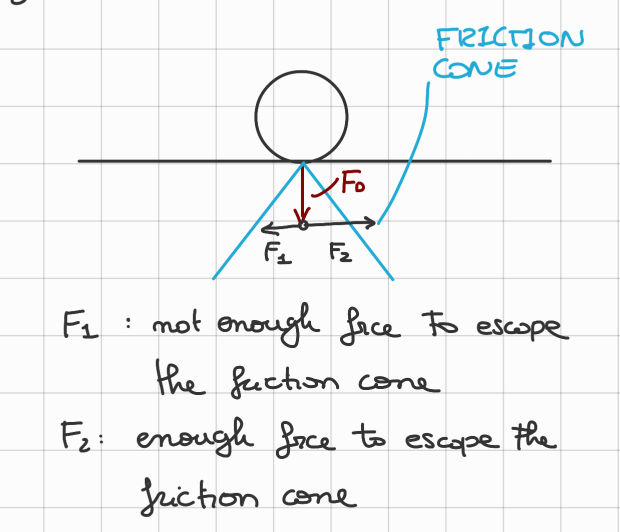 FRICTION
CONE
F0
F1
F2
F1 : not enough frce to escape
the friction cone
F2: enough frce to escape the
friction cone